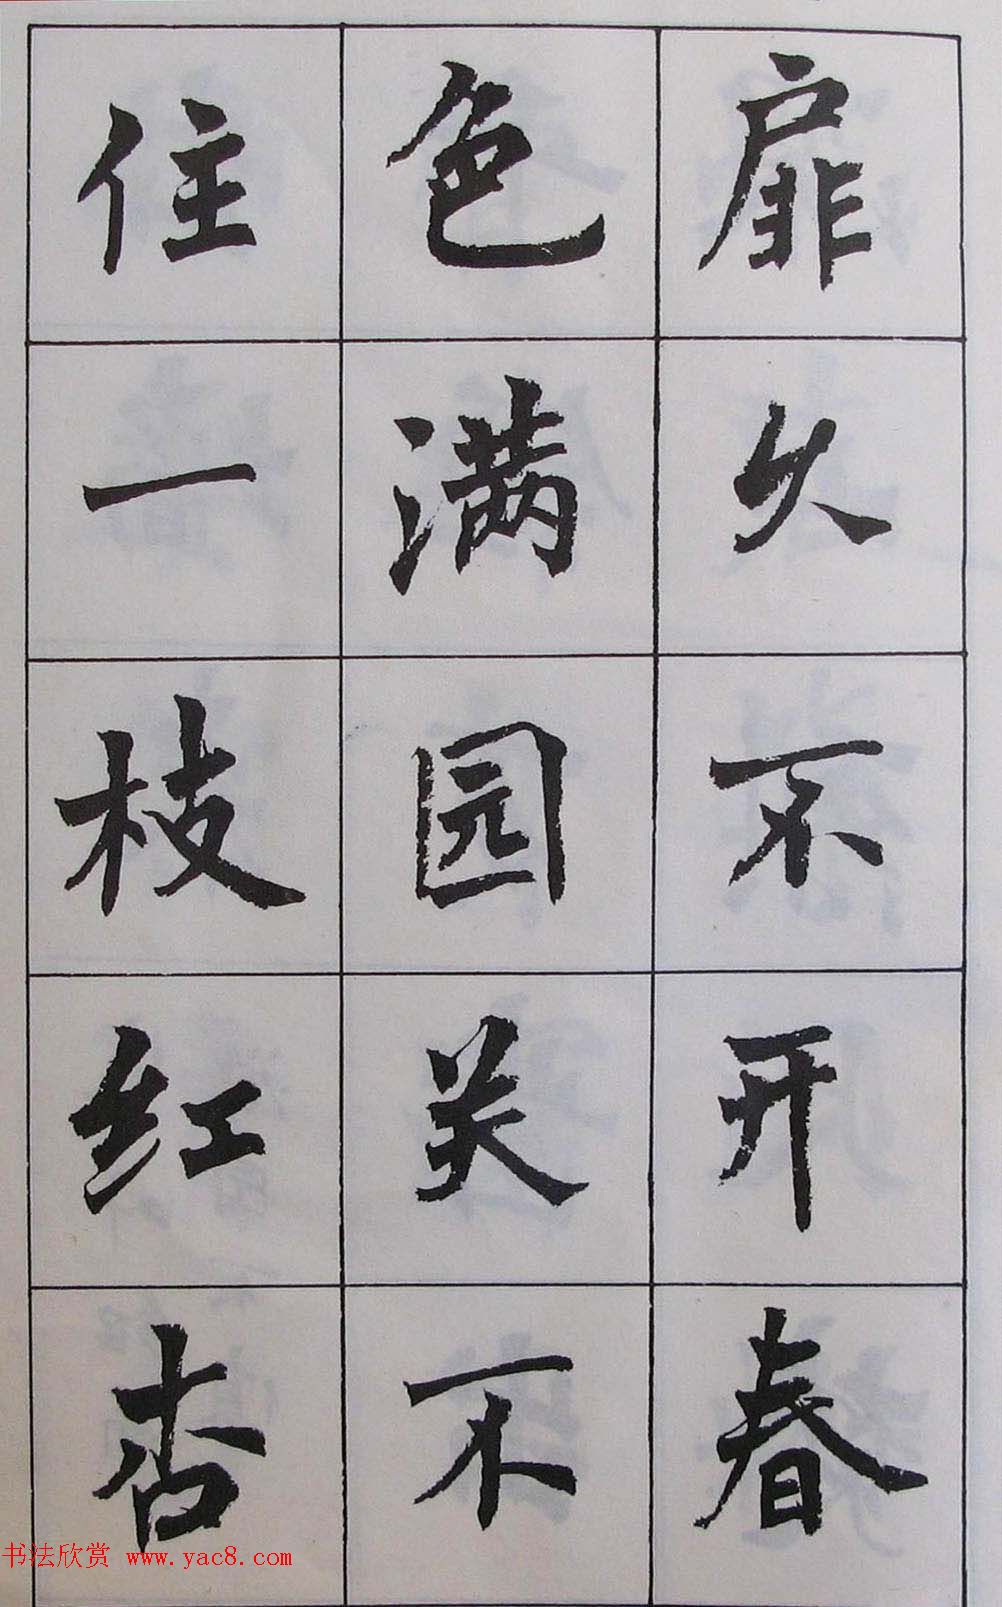 扉久不开春
色满园关不
住一枝红杏
书法欣赏 www.yac8.com